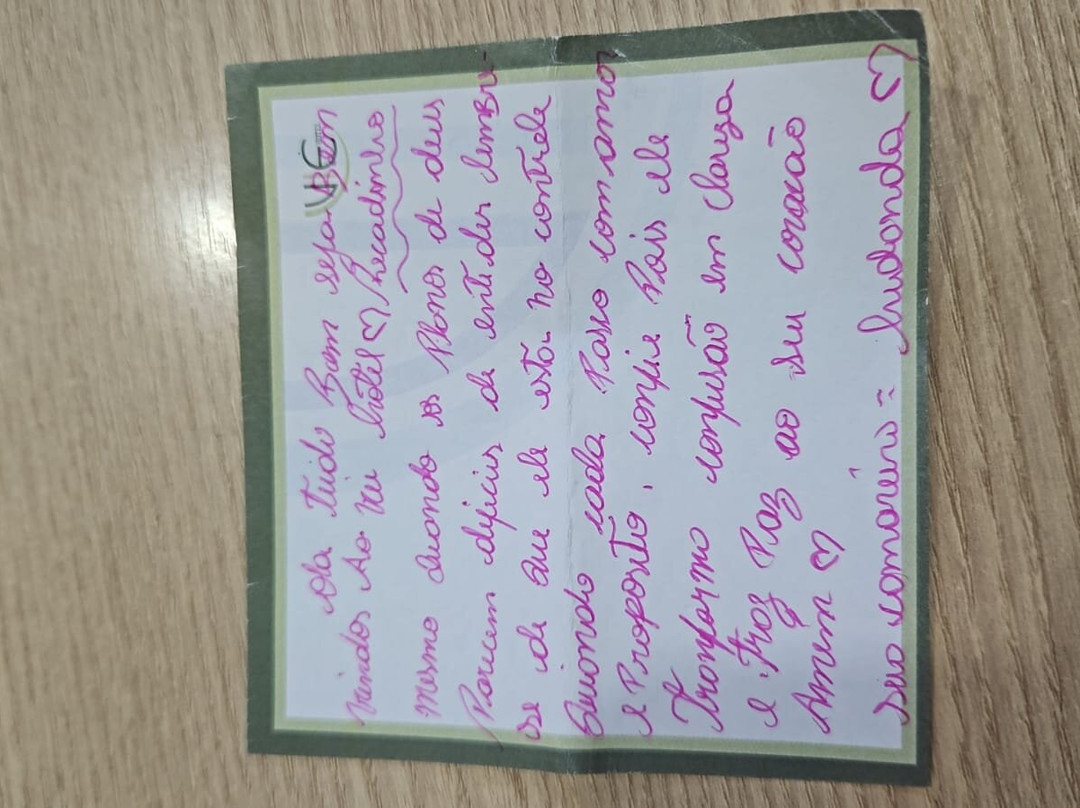 Ola tudo Bem sejam Bem
Vindos Ao Hotel ♡ Recadinho
mesmo quando os Planos de deus
Parecem dificies de enteder lembre-
se de que ele esta no controle
Guiando cada Passo com amor
e Proposito. confie Pois ele
Tronforma confusão em clareza
e Traz Paz ao seu coração
Amem ♡
sua camareira =